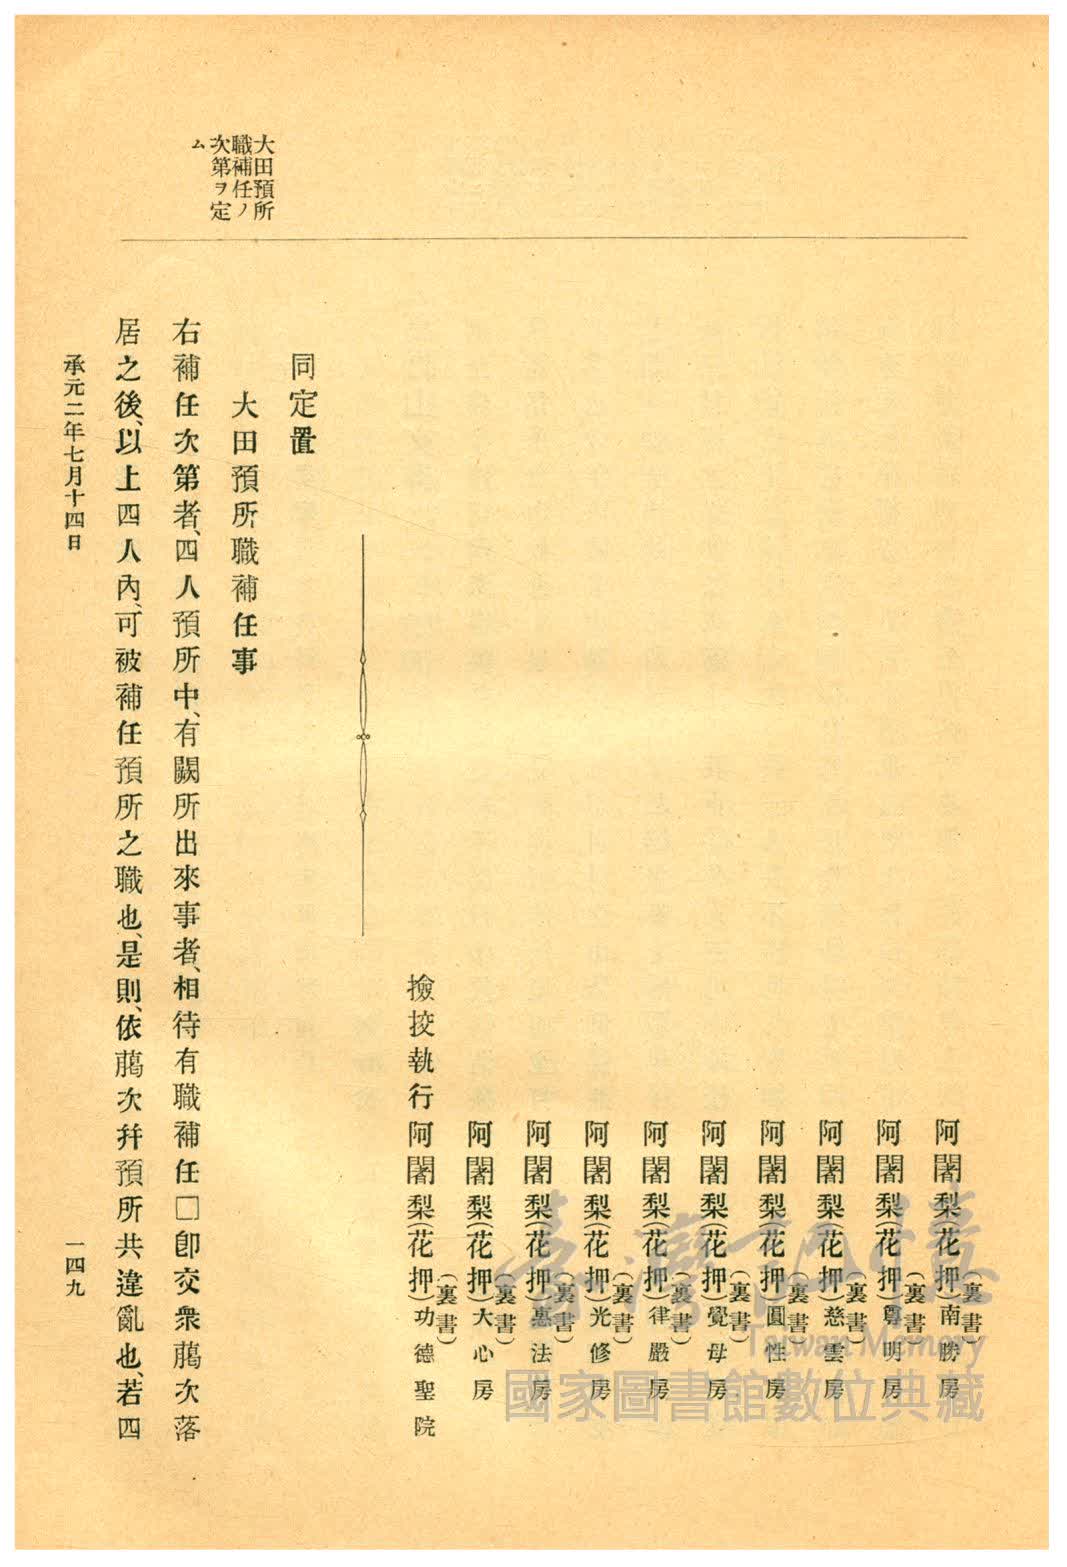 阿闍梨(花押)(裏書)南勝房
阿闍梨(花押)(裏書)尊明房
阿闍梨(花押)(裏書)慈雲房
阿闍梨(花押)(裏書)圓性房
阿闍梨(花押)(裏書)覺母房
阿闍梨(花押)(裏書)律嚴房
阿闍梨(花押)(裏書)光修房
阿闍梨(花押)(裏書)惠法房
阿闍梨(花押)(裏書)大心房
撿挍執行阿闍梨(花押)(裏書)功德聖院
同定置
大田預所職補任事
右補任次第者、四人預所中、有闕所出來事者、相待有職補任□卽交衆﨟次落
居之後、以上四人內、可被補任預所之職也、是則、依﨟次幷預所共違亂也、若四
大田預所
職補任ノ
次第ヲ定
ム
承元二年七月十四日
一四九
臺灣記憶
Taiwan Memory
國家圖書館數位典藏